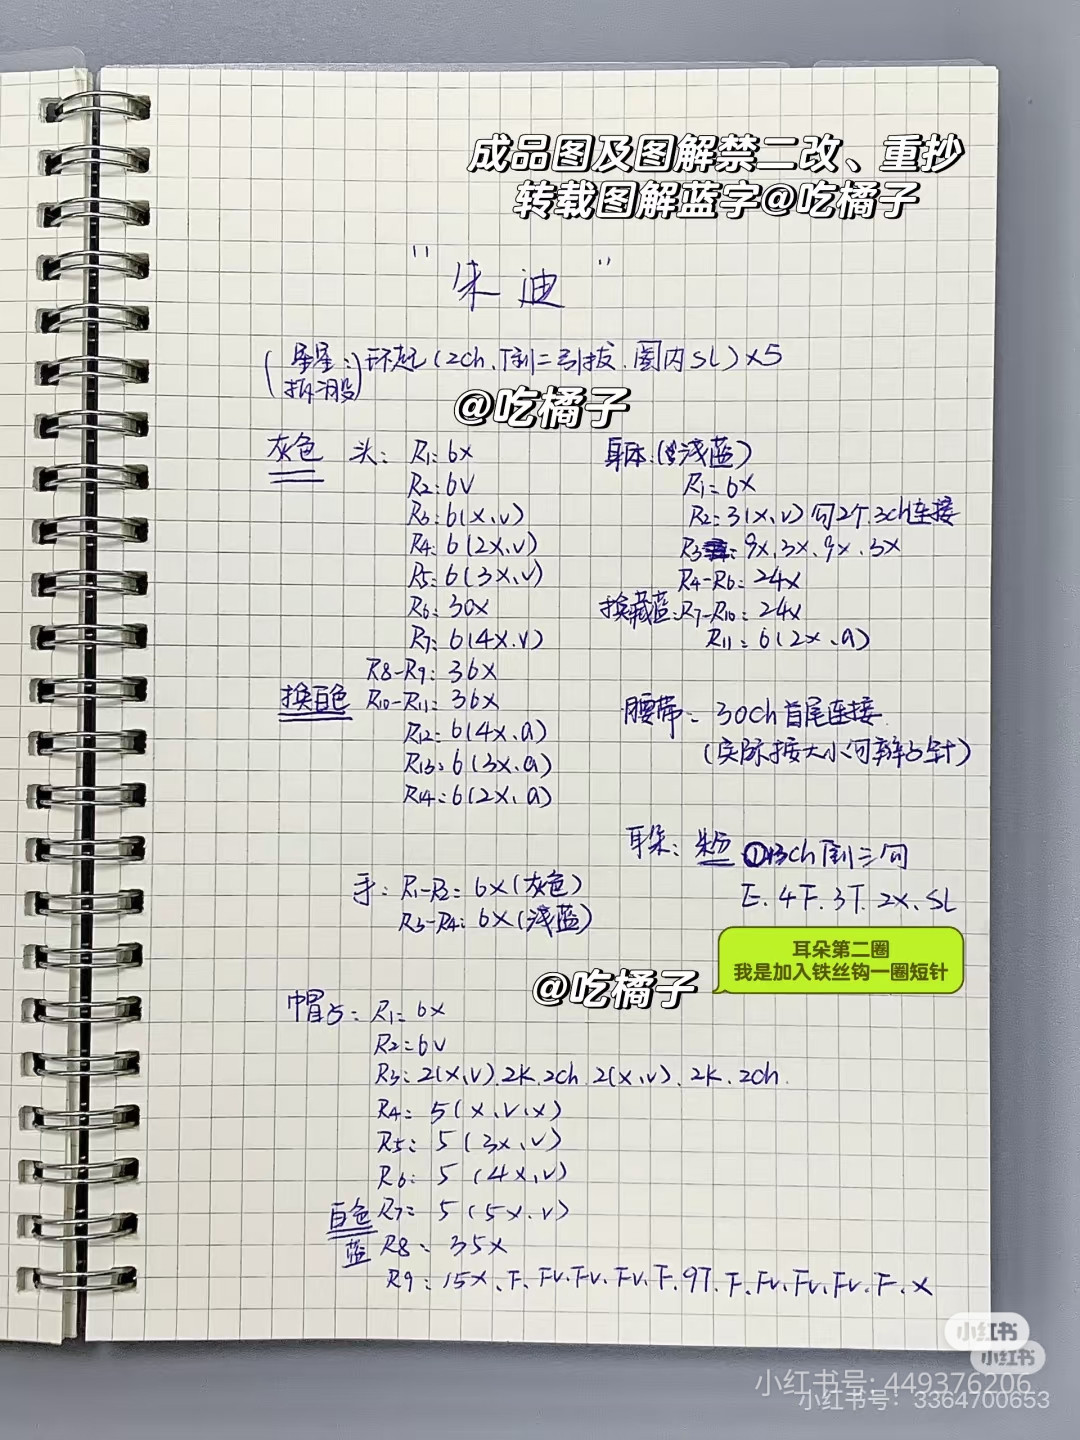 成品图及图解禁二改、重抄
转载图解蓝字@吃橘子
"朱迪"
(星星: 拆2股) 环起(2ch、倒二引拔、圈内SL)×5
@吃橘子
灰色 头: R1: 6X
R2: 6V
R3: 6(X、V)
R4: 6(2X、V)
R5: 6(3X、V)
R6: 30X
R7: 6(4X、V)
R8-R9: 36X
换白色 R10-R11: 36X
R12: 6(4X、A)
R13: 6(3X、A)
R14: 6(2X、A)
身体:(浅蓝)
R1: 6X
R2: 3(X、V) 勾2个3ch连接
R3: 9X、3X、9X、3X
R4-R6: 24X
换藏蓝: R7-R10: 24X
R11: 6(2X、A)
腰带: 30ch首尾连接
(实际按大小勾辫子针)
耳朵: 粉 ①13ch倒三勾
E、4F、3T、2X、SL
耳朵第二圈
我是加入铁丝钩一圈短针
手: R1-R2: 6X(灰色)
R3-R4: 6X(浅蓝)
@吃橘子
帽子: R1: 6X
R2: 6V
R3: 2(X、V)、2K、2ch、2(X、V)、2K、2ch
R4: 5(X、V、X)
R5: 5(3X、V)
R6: 5(4X、V)
白色 R7: 5(5X、V)
蓝 R8: 35X
R9: 15X、F、FV、FV、FV、F、9T、F、FV、FV、FV、F、X
小红书
小红书
小红书号: 449376206
小红书号: 3364700653